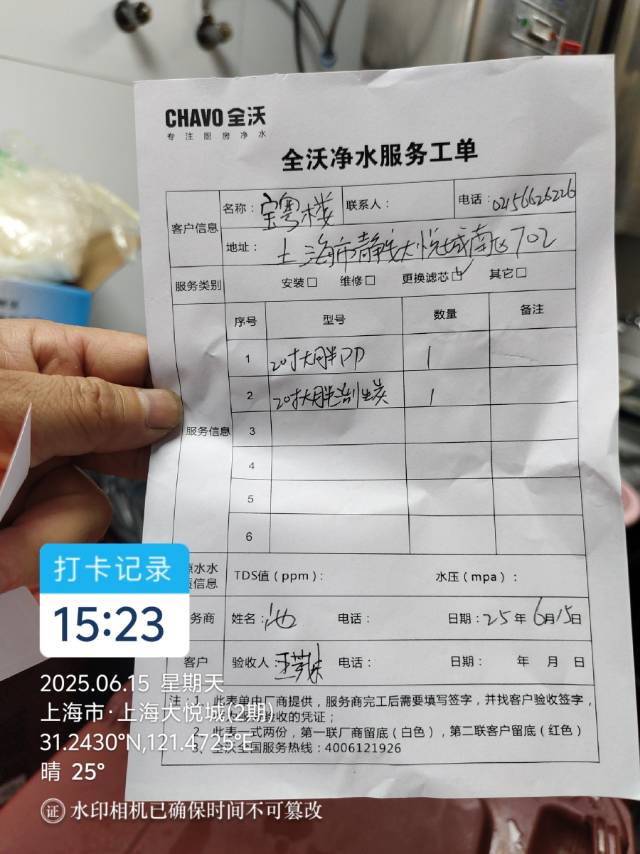 CHAVO 全沃
专注厨房净水
全沃净水服务工单
客户信息 名称：宝粤楼 联系人： 电话：02156626226
地址：上海市静安大悦城南区702
服务类别 安装□ 维修□ 更换滤芯☑ 其它□
服务信息
序号 型号 数量 备注
1 20寸大胖PP 1
2 20寸大胖 炭 1
3
4
5
6
原水水
信息 TDS值（ppm）： 水压（mpa）：
务商 姓名： 电话： 日期：25年6月15日
客户 验收人 电话： 日期： 年 月 日
注：1、此表单由厂商提供，服务商完工后需要填写签字，并找客户验收签字，
验收的凭证；
2、此表一式两份，第一联厂商留底（白色），第二联客户留底（红色）
3、全沃全国服务热线：4006121926
打卡记录
15:23
2025.06.15 星期天
上海市·上海大悦城(2期)
31.2430°N,121.4725°E
晴 25°
证 水印相机已确保时间不可篡改